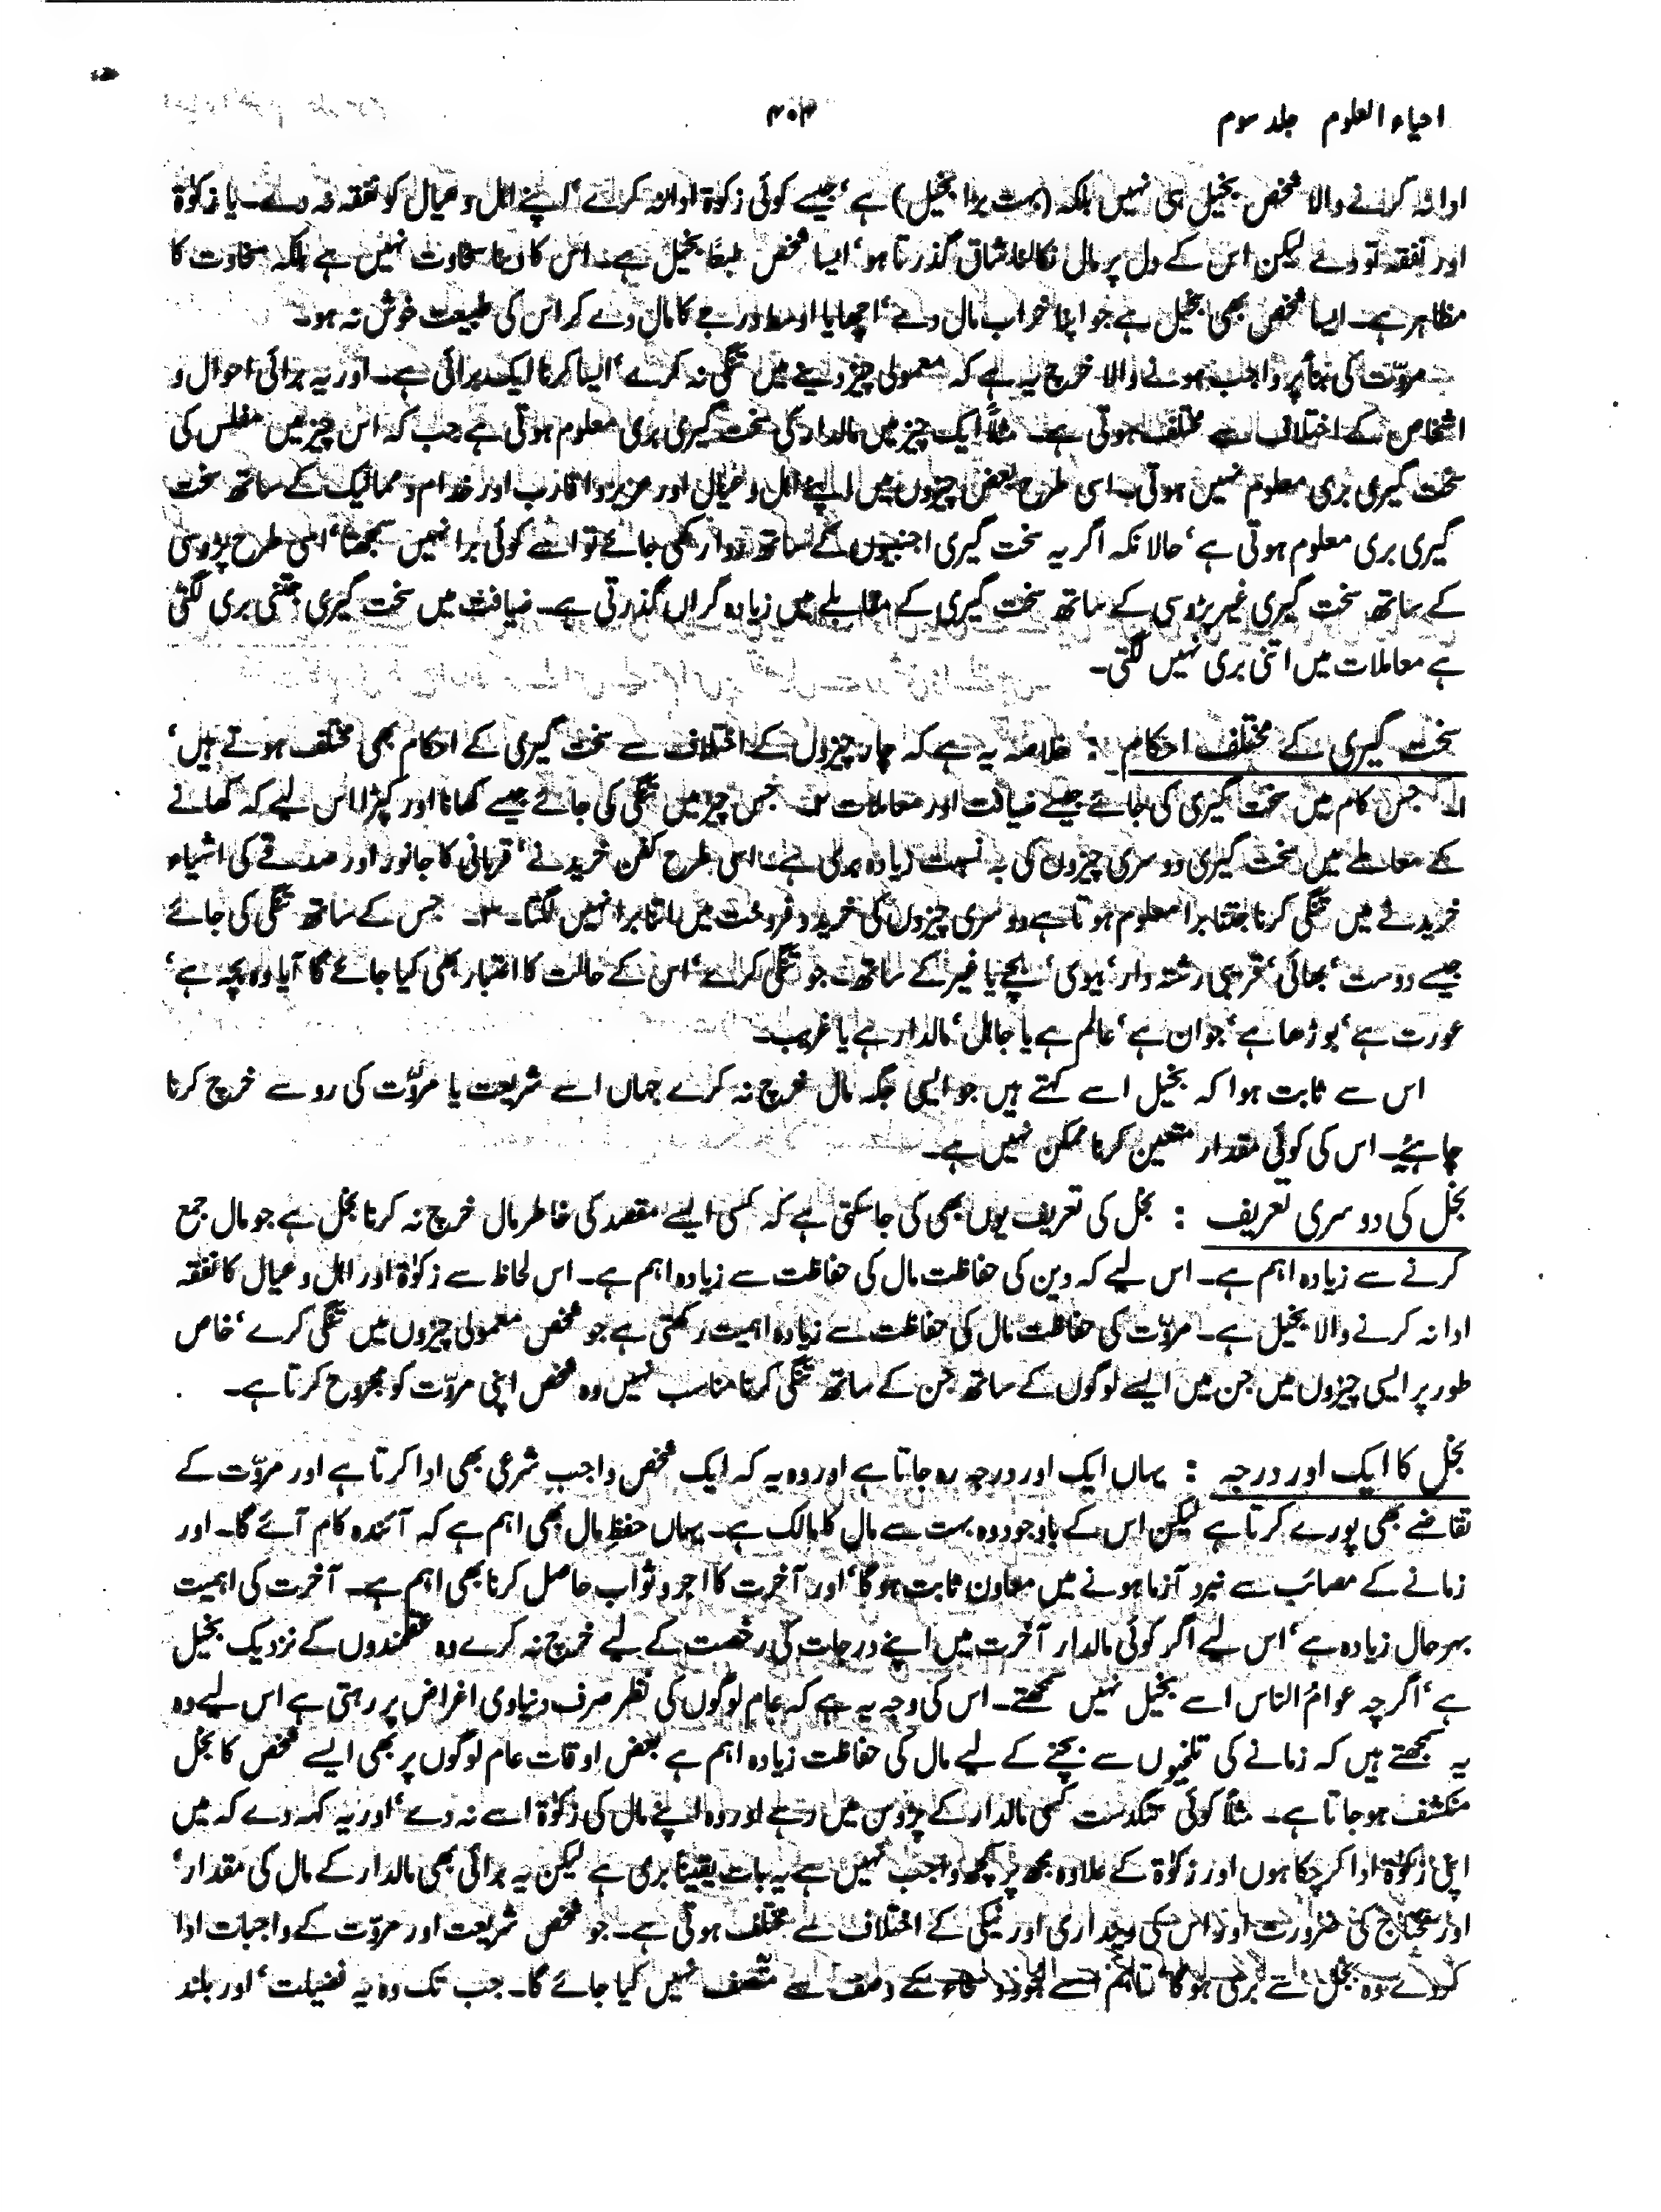 احیاء العلوم جلد سوم
۴۰۴
ادا نہ کرنے والا شخص بخیل ہی نہیں بلکہ (بہت بڑا بخیل) ہے، جیسے کوئی زکوٰۃ ادا نہ کرے، اپنے اہل و عیال کو نفقہ نہ دے۔ یا زکوٰۃ
اور نفقہ تو دے لیکن اس کے دل پر مال نکالنا شاق گذرتا ہو، ایسا شخص طبعاً بخیل ہے۔ اس کا دینا سخاوت نہیں ہے بلکہ سخاوت کا
مظاہر ہے۔ ایسا شخص بھی بخیل ہے جو اپنا خراب مال دے، اچھا یا اوسط درجے کا مال دے کر اس کی طبیعت خوش نہ ہو۔
مروّت کی بنا پر واجب ہونے والا خرچ یہ ہے کہ معمولی چیز دینے میں تنگی نہ کرے، ایسا کرنا ایک برائی ہے۔ اور یہ برائی احوال و
اشخاص کے اختلاف سے مختلف ہوتی ہے۔ مثلاً ایک چیز میں مالدار کی سخت گیری بری معلوم ہوتی ہے جب کہ اس چیز میں مفلس کی
سخت گیری بری معلوم نہیں ہوتی۔ اسی طرح بعض چیزوں میں اپنے اہل و عیال اور عزیز و اقارب اور خدام و ممالیک کے ساتھ سخت
گیری بری معلوم ہوتی ہے، حالانکہ اگر یہ سخت گیری اجنبیوں کے ساتھ روا رکھی جائے تو اسے کوئی برا نہیں سمجھتا، اسی طرح پڑوسی
کے ساتھ سخت گیری غیر پڑوسی کے ساتھ سخت گیری کے مقابلے میں زیادہ گراں گذرتی ہے۔ ضیافت میں سخت گیری جتنی بری لگتی
ہے معاملات میں اتنی بری نہیں لگتی۔
سخت گیری کے مختلف احکام : خلاصہ یہ ہے کہ چار چیزوں کے اختلاف سے سخت گیری کے احکام بھی مختلف ہوتے ہیں،
۱۔ جس کام میں سخت گیری کی جائے جیسے ضیافت اور معاملات ۲۔ جس چیز میں تنگی کی جائے جیسے کھانا اور کپڑا اس لیے کہ کھانے
کے معاملے میں سخت گیری دوسری چیزوں کی بہ نسبت زیادہ بری ہے۔ اسی طرح کفن خریدنے، قربانی کا جانور اور صدقے کی اشیاء
خریدنے میں تنگی کرنا جتنا برا معلوم ہوتا ہے دوسری چیزوں کی خرید و فروخت میں اتنا برا نہیں لگتا۔ ۳۔ جس کے ساتھ تنگی کی جائے
جیسے دوست، بھائی، قریبی رشتہ دار، بیوی، بچے یا غیر کے ساتھ۔ جو تنگی کرے، اس کے حالت کا اعتبار بھی کیا جائے گا آیا وہ بچہ ہے،
عورت ہے، بوڑھا ہے، جوان ہے، عالم ہے یا جاہل، مالدار ہے یا غریب۔
اس سے ثابت ہوا کہ بخیل اسے کہتے ہیں جو ایسی جگہ مال خرچ نہ کرے جہاں اسے شریعت یا مروّت کی رو سے خرچ کرنا
چاہئیے۔ اس کی کوئی مقدار متعین کرنا ممکن نہیں ہے۔
بخل کی دوسری تعریف : بخل کی تعریف یوں بھی کی جا سکتی ہے کہ کسی ایسے مقصد کی خاطر مال خرچ نہ کرنا بخل ہے جو مال جمع
کرنے سے زیادہ اہم ہے۔ اس لیے کہ دین کی حفاظت مال کی حفاظت سے زیادہ اہم ہے۔ اس لحاظ سے زکوٰۃ اور اہل و عیال کا نفقہ
ادا نہ کرنے والا بخیل ہے۔ مروّت کی حفاظت مال کی حفاظت سے زیادہ اہمیت رکھتی ہے جو شخص معمولی چیزوں میں تنگی کرے، خاص
طور پر ایسی چیزوں میں جن میں ایسے لوگوں کے ساتھ جن کے ساتھ تنگی کرنا مناسب نہیں وہ شخص اپنی مروّت کو مجروح کرتا ہے۔
بخل کا ایک اور درجہ : یہاں ایک اور درجہ رہ جاتا ہے اور وہ یہ کہ ایک شخص واجب شرعی بھی ادا کرتا ہے اور مروّت کے
تقاضے بھی پورے کرتا ہے لیکن اس کے باوجود وہ بہت سے مال کا مالک ہے۔ یہاں حفظِ مال بھی اہم ہے کہ آئندہ کام آئے گا۔ اور
زمانے کے مصائب سے نبرد آزما ہونے میں معاون ثابت ہوگا، اور آخرت کا اجر و ثواب حاصل کرنا بھی اہم ہے۔ آخرت کی اہمیت
بہر حال زیادہ ہے، اس لیے اگر کوئی مالدار آخرت میں اپنے درجات کی رخصت کے لیے خرچ نہ کرے وہ عقلمندوں کے نزدیک بخیل
ہے، اگرچہ عوامُ الناس اسے بخیل نہیں سمجھتے۔ اس کی وجہ یہ ہے کہ عام لوگوں کی نظر صرف دنیاوی اغراض پر رہتی ہے اس لیے وہ
یہ سمجھتے ہیں کہ زمانے کی تلخیوں سے بچنے کے لیے مال کی حفاظت زیادہ اہم ہے بعض اوقات عام لوگوں پر بھی ایسے شخص کا بخل
منکشف ہو جاتا ہے۔ مثلاً کوئی تنگدست کسی مالدار کے پڑوس میں رہے اور وہ اپنے مال کی زکوٰۃ اسے نہ دے، اور یہ کہہ دے کہ میں
اپنی زکوٰۃ ادا کر چکا ہوں اور زکوٰۃ کے علاوہ مجھ پر کچھ واجب نہیں ہے یہ بات یقیناً بری ہے لیکن یہ برائی بھی مالدار کے مال کی مقدار،
اور محتاج کی ضرورت اور اس کی دینداری اور نیکی کے اختلاف سے مختلف ہوتی ہے۔ جو شخص شریعت اور مروّت کے واجبات ادا
کردے وہ بخل سے بری ہوگا، تاہم اسے جود و سخاء کے وصف سے متّصف نہیں کیا جائے گا۔ جب تک وہ یہ فضیلت، اور بلند